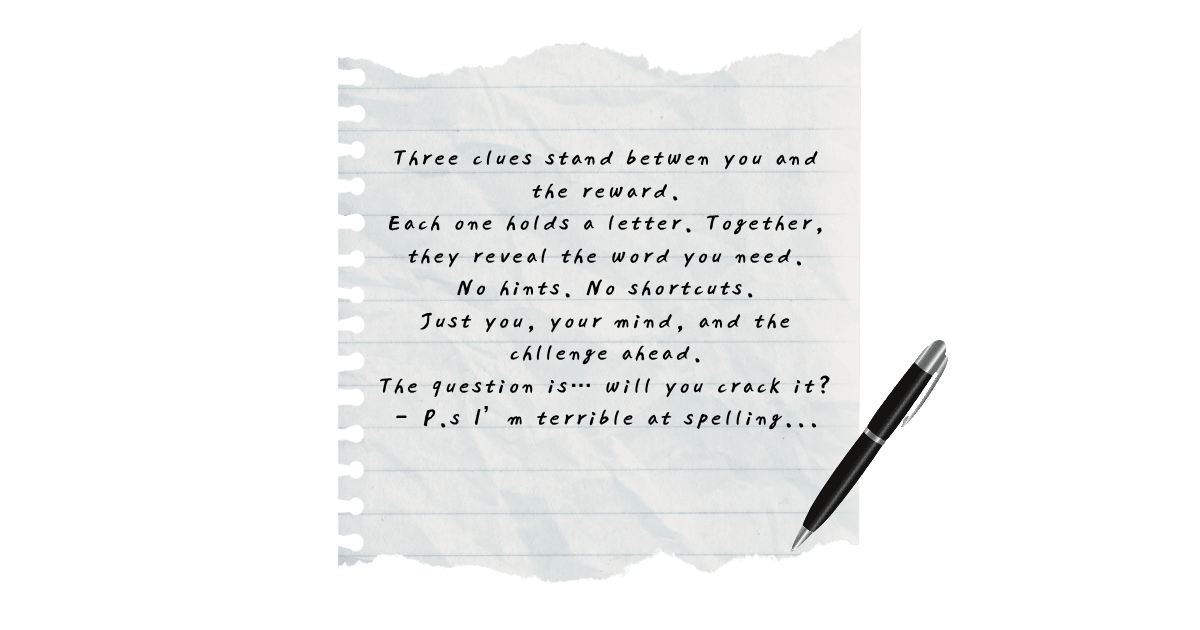 Three clues stand betwen you and
the reward.
Each one holds a letter. Together,
they reveal the word you need.
No hints. No shortcuts.
Just you, your mind, and the
chllenge ahead.
The question is… will you crack it?
- P.s I'm terrible at spelling...